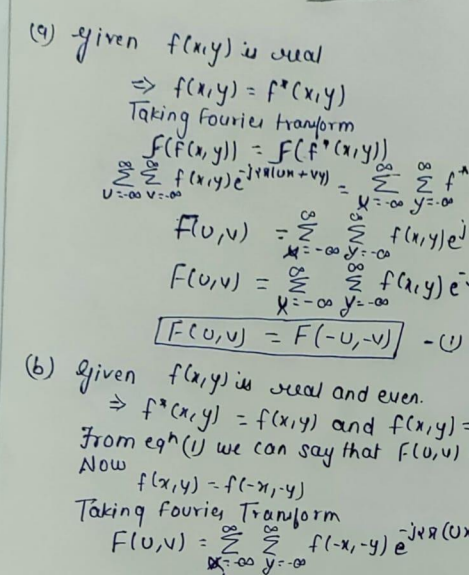 (a) given f(x,y) is real
⇒ f(x,y) = f*(x,y)
Taking Fourier tranform
F(f(x,y)) = F(f*(x,y))
∞ ∞ Σ Σ f(x,y)e^-j2π(ux+vy) = ∞ ∞ Σ Σ f*
U=-∞ V=-∞ x=-∞ y=-∞
F(u,v) = ∞ ∞ Σ Σ f(x,y)e^j
x=-∞ y=-∞
F(u,v) = ∞ ∞ Σ Σ f(x,y)e^-
x=-∞ y=-∞
F(u,v) = F(-u,-v) -(1)
(b) given f(x,y) is real and even.
⇒ f*(x,y) = f(x,y) and f(x,y) =
From eqn (1) we can say that F(u,v)
Now
f(x,y) = f(-x,-y)
Taking Fourier Tranform
F(u,v) = ∞ ∞ Σ Σ f(-x,-y) e^-j2π(Ux
x=-∞ y=-∞